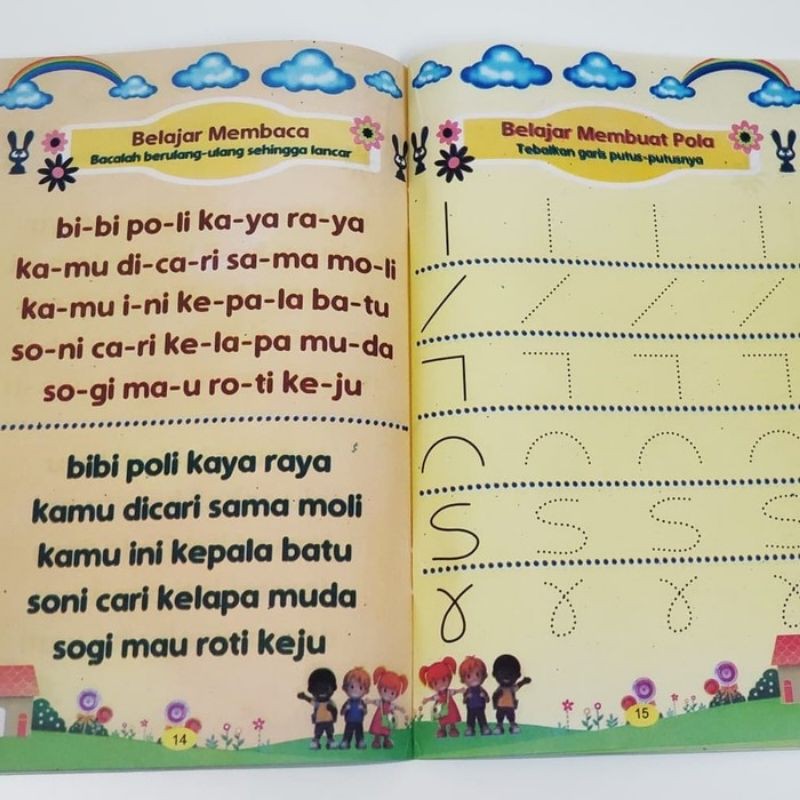 Belajar Membaca
Bacalah berulang-ulang sehingga lancar
bi-bi po-li ka-ya ra-ya
ka-mu di-ca-ri sa-ma mo-li
ka-mu i-ni ke-pa-la ba-tu
so-ni ca-ri ke-la-pa mu-da
so-gi ma-u ro-ti ke-ju
bibi poli kaya raya
kamu dicari sama moli
kamu ini kepala batu
soni cari kelapa muda
sogi mau roti keju
14
Belajar Membuat Pola
Tebalkan garis putus-putusnya
15